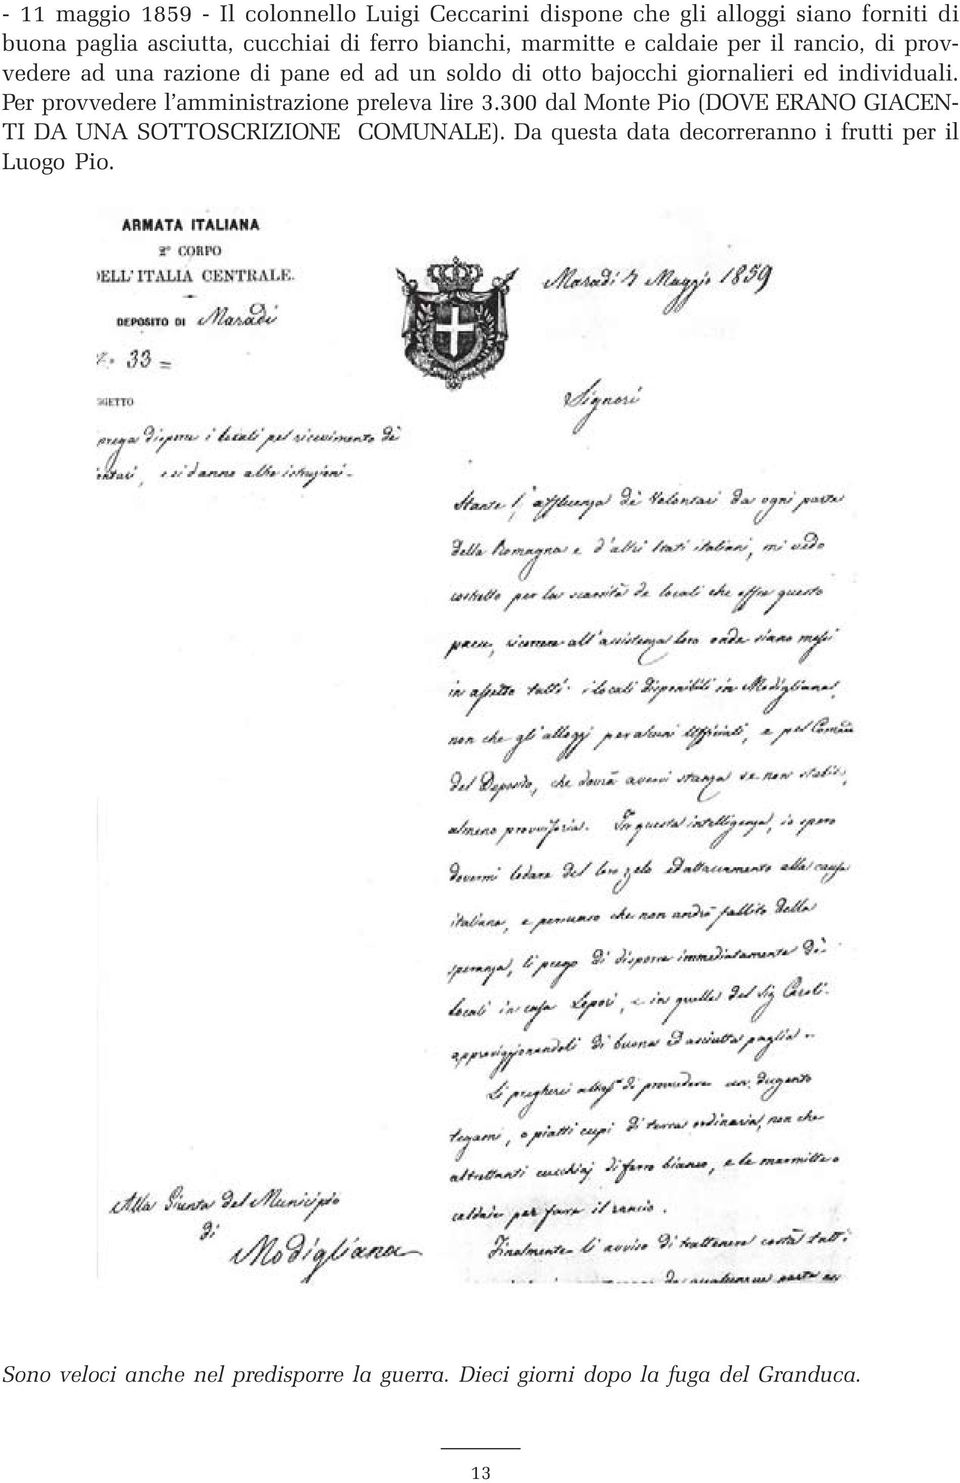 - 11 maggio 1859 - Il colonnello Luigi Ceccarini dispone che gli alloggi siano forniti di
buona paglia asciutta, cucchiai di ferro bianchi, marmitte e caldaie per il rancio, di prov-
vedere ad una razione di pane ed ad un soldo di otto bajocchi giornalieri ed individuali.
Per provvedere l'amministrazione preleva lire 3.300 dal Monte Pio (DOVE ERANO GIACEN-
TI DA UNA SOTTOSCRIZIONE COMUNALE). Da questa data decorreranno i frutti per il
Luogo Pio.
ARMATA ITALIANA
2° CORPO
DELL'ITALIA CENTRALE.
DEPOSITO DI Maradi
N.° 33 =
GGETTO
prega disporre i locali pel ricevimento dè
ontari, e si danno altre istruzioni -
Maradi 7 Maggio 1859
Signori
Stante l'affluenza dè Volontari da ogni parte
della Romagna e d'altri Stati italiani, mi vedo
costretto per la scarsità de locali che offre questo
paese, ricorrere all'assistenza loro onde siano messi
in assetto tutti i locali disponibili in Modigliana,
non che gli alloggi per alcuni Ufficiali, e pel Coman
del Deposito, che dovrà avervi stanza se non stabile,
almeno provvisoria. In questa intelligenza, io spero
dovermi lodare del loro zelo ed attaccamento alla causa
italiana, e persuaso che non andrà fallito della
speranza, li prego di disporre immediatamente dè
locali in casa Lepori, e in quelle del Sig Caroli
approvvigionandoli di buona ed asciutta paglia -
Li pregherei altresì di provvedere un dugento
tegami, o piatti cupi di terra ordinaria, non che
altrettanti cucchiaj di ferro bianco, e le marmitte o
caldaie per fare il rancio.
Finalmente li avviso di trattenere costà tutti
da qualunque parte
Alla Giunta del Municipio
di
Modigliana
Sono veloci anche nel predisporre la guerra. Dieci giorni dopo la fuga del Granduca.
13